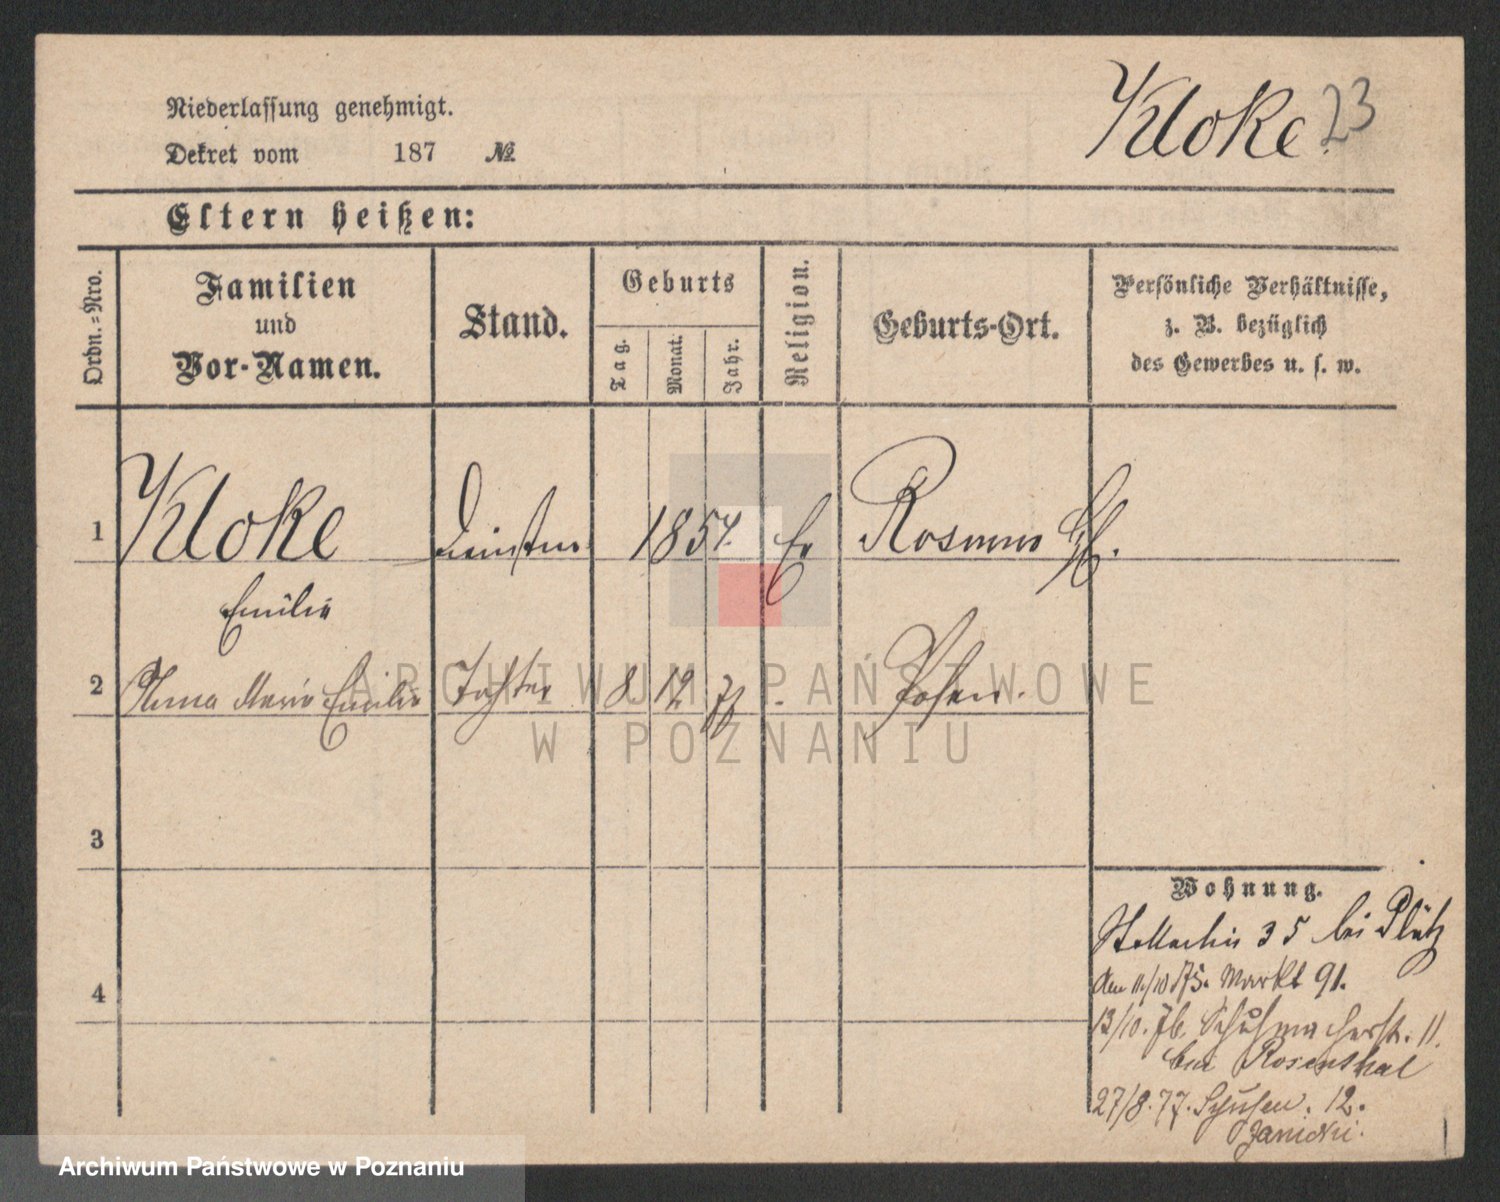 Niederlassung genehmigt.
Dekret vom 187 №
Kloke 23
Eltern heißen:
Ordn.=Nro.
Familien
und
Vor-Namen.
Stand.
Geburts
Tag.
Monat.
Jahr.
Religion.
Geburts-Ort.
Persönliche Verhältnisse,
z. B. bezüglich
des Gewerbes u. s. w.
1 Kloke 1854. Ev
Emilie
2 Anna Marie Emilie Tochter 8 12 77 Posen.
3
4
Wohnung.
35 bei
den 11/10 75. Markt 91.
13/10. 76. Schuhmacherstr. 11.
bei Rosenthal
27/8. 77. 12.
Janicki.
ARCHIWUM PAŃSTWOWE
W POZNANIU
Archiwum Państwowe w Poznaniu